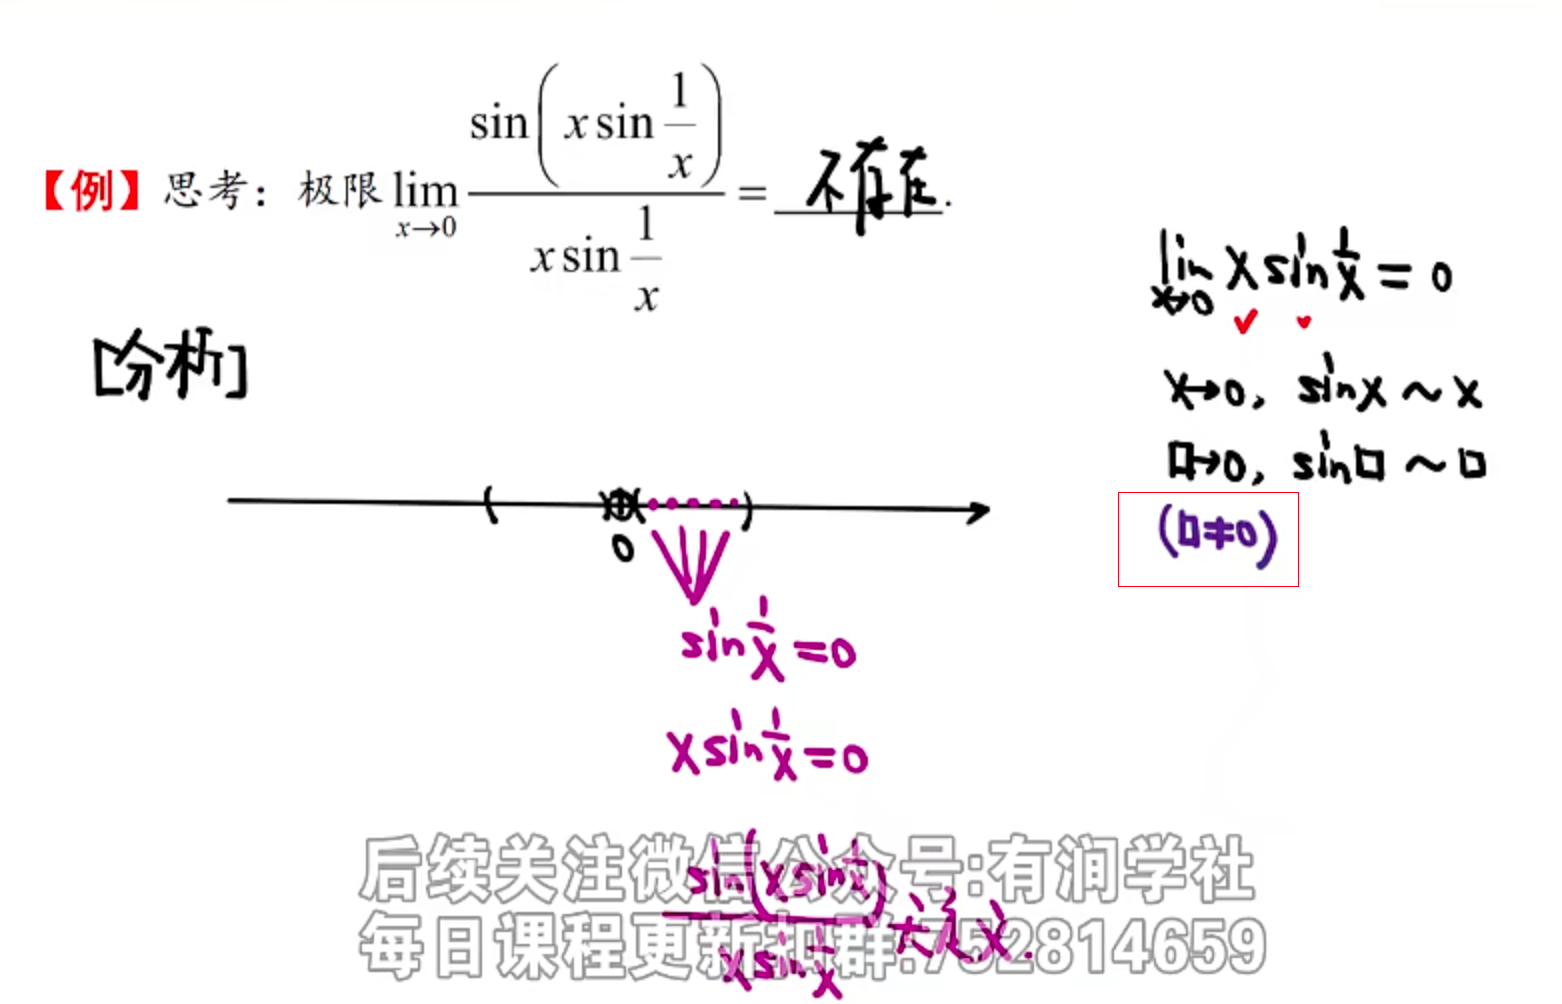 【例】思考：极限 lim x→0 sin(x sin 1/x) / (x sin 1/x) = 不存在.
lim x→0 x sin 1/x = 0
[分析]
x→0, sinx ~ x
□→0, sin□ ~ □
(□≠0)
0
sin 1/x = 0
x sin 1/x = 0
sin(x sin 1/x) / (x sin 1/x) 无定义.
后续关注微信公众号:有润学社
每日课程更新扣群:752814659